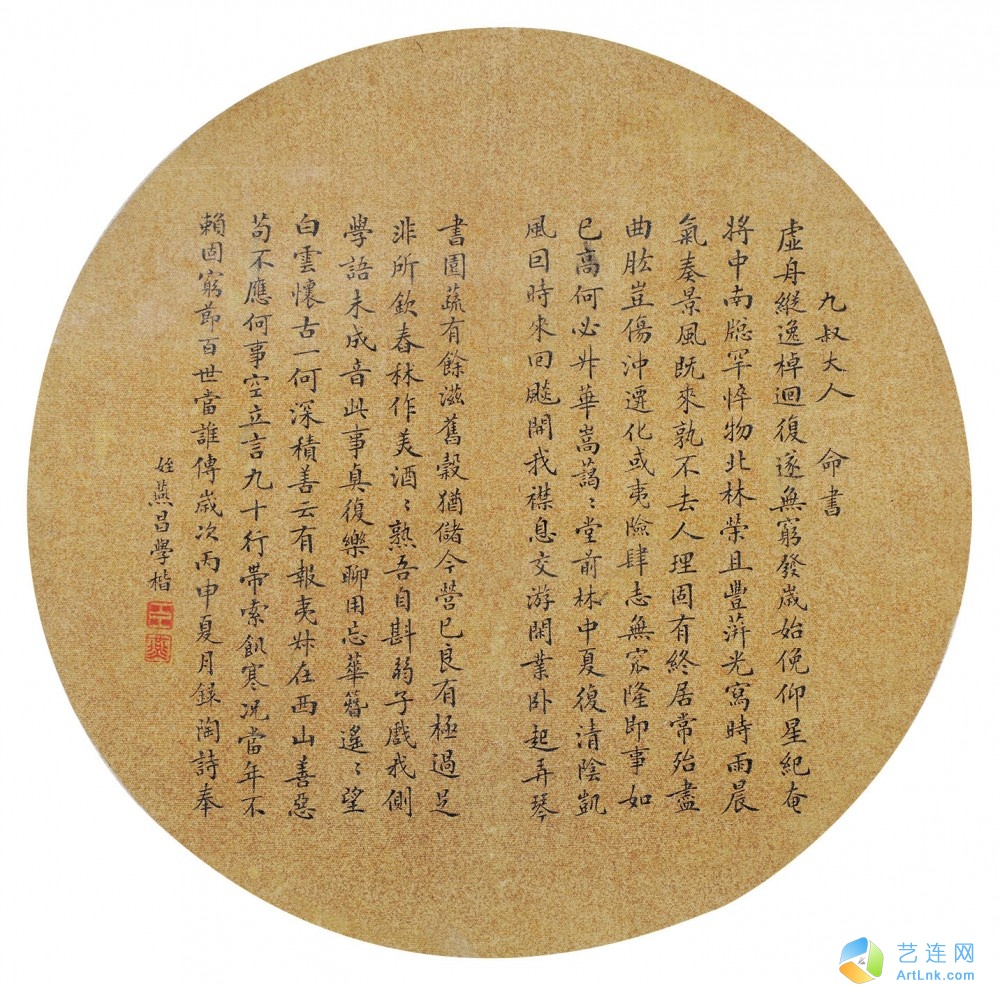 九叔大人 命書
虛舟縱逸棹迴復遂無窮發歲始俛仰星紀奄
將中南牕罕悴物北林榮且豐萍光寫時雨晨
氣奏景風既來孰不去人理固有終居常殆盡
曲肱豈傷沖遷化或夷險肆志無窊隆即事如
已高何必升華嵩藹〻堂前林中夏復清陰凱
風回時來回飈開我襟息交游閑業卧起弄琴
書園蔬有餘滋舊穀猶儲今營已良有極過足
非所欽舂秫作美酒〻熟吾自斟弱子戲我側
學語未成音此事真復樂聊用忘華簪遙〻望
白雲懷古一何深積善云有報夷叔在西山善惡
苟不應何事空立言九十行帶索飢寒況當年不
賴固窮節百世當誰傳歲次丙申夏月錄陶詩奉
姪燕昌學楷
艺连网
ArtLnk.com